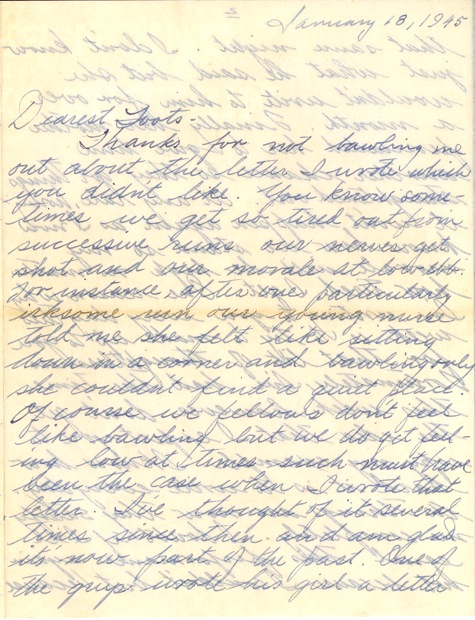 January 18, 1945
Dearest Toots-
Thanks for not bawling me
out about the letter I wrote which
you didnt like. You know some-
times we get so tired out from
successive runs our nerves get
shot and our morale at low ebb.
For instance, after one particularly
irksome run our young nurse
told me she felt like sitting
down in a corner and bawling only
she couldnt find a quiet place.
Of course we fellows dont feel
like bawling but we do get feel-
ing low at times such must have
been the case when I wrote that
letter. I've thought of it several
times since then and am glad
its now part of the past. One of
the guys wrote his girl a letter